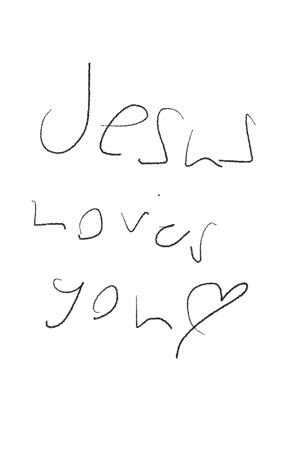 Jesus
Loves
you♡